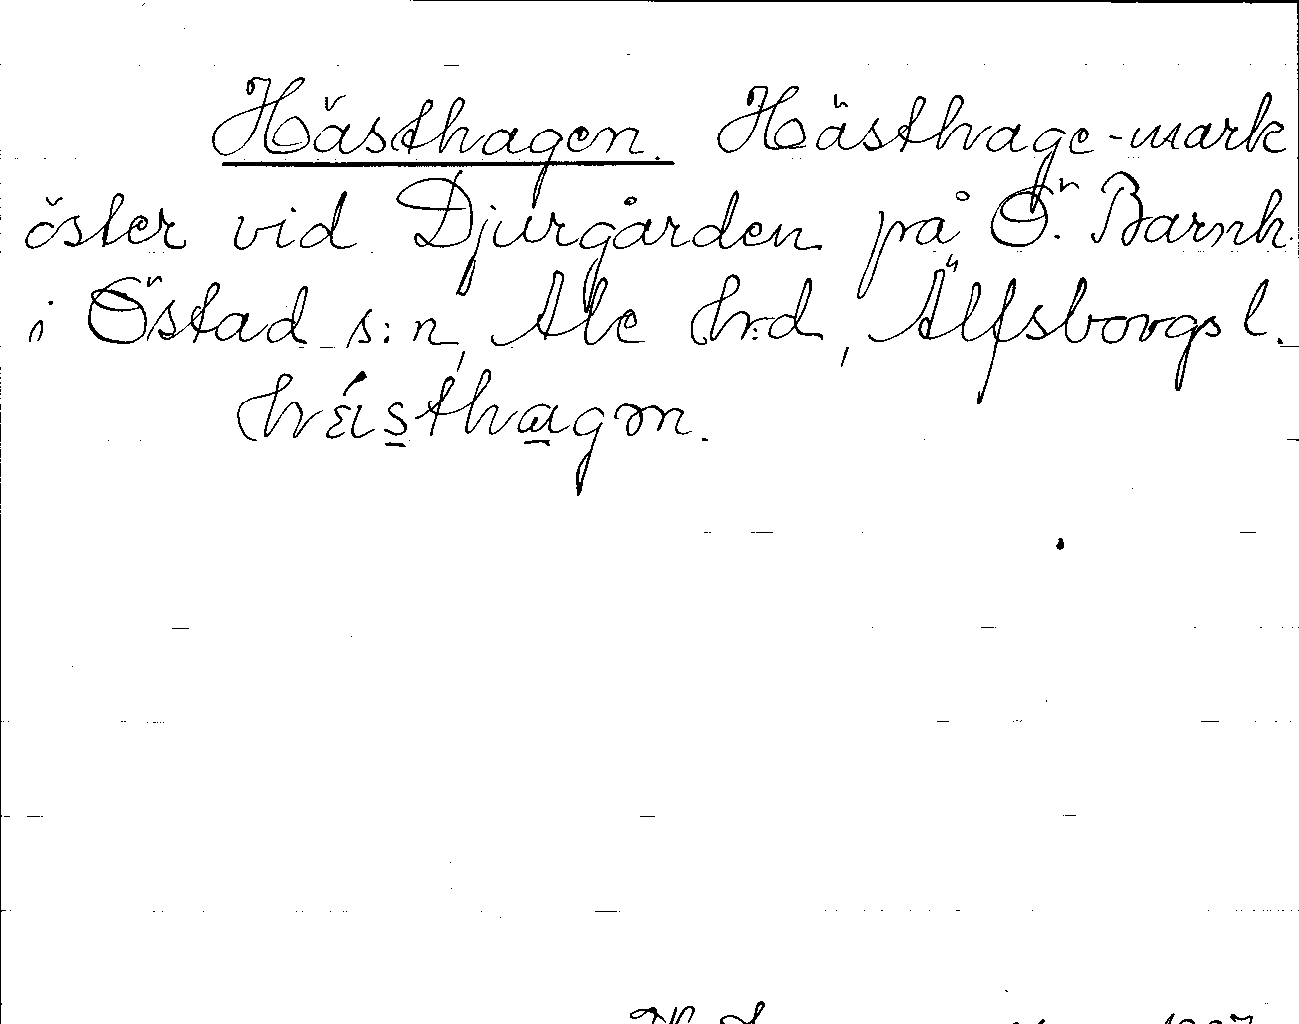 Hästhagen. Hästhage-mark
öster vid Djurgården på Ö. Barnh.
i Östad s:n, Ale hrd, Älfsborgs l.
hä́sthagən.